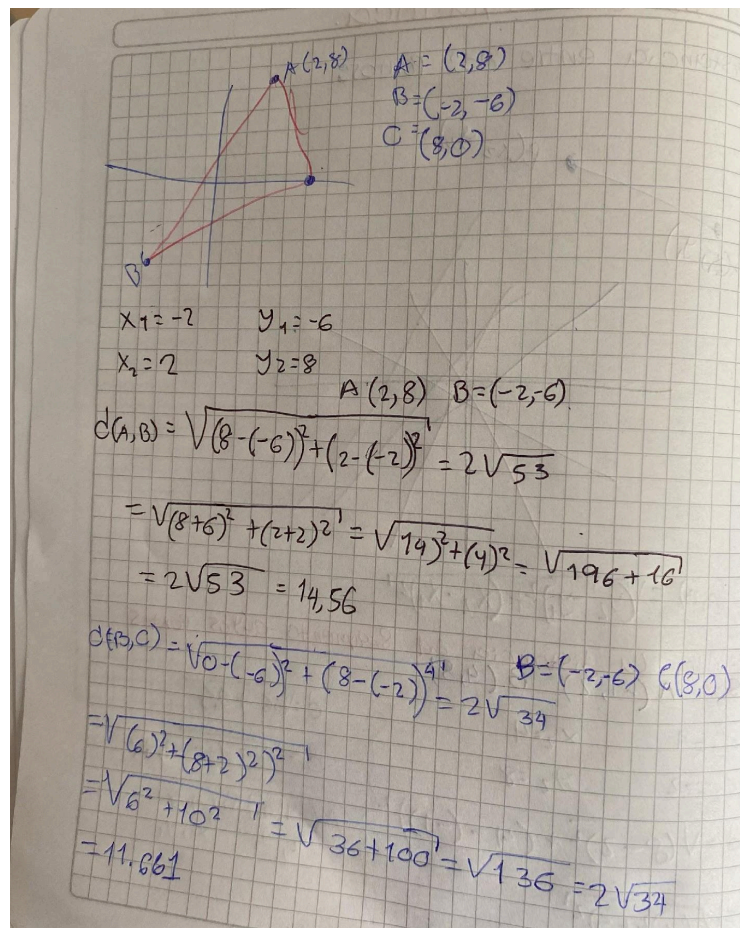 A(2,8)
A = (2,8)
B=(-2,-6)
C=(8,0)
B
x1=-2 y1=-6
x2=2 y2=8
A(2,8) B=(-2,-6)
d(A,B) = √(8-(-6))²+(2-(-2))² = 2√53
= √(8+6)²+(2+2)² = √14)²+(4)² = √196+16
= 2√53 = 14,56
d(B,C) = √0-(-6))²+(8-(-2))⁴ = 2√34 B=(-2,-6) C(8,0)
=√(6)²+(8+2)²)²
=√6²+10² = √36+100 = √136 = 2√34
=11.661